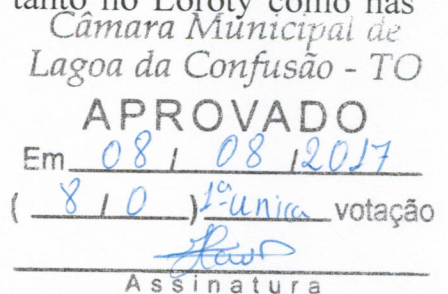 tanto no Loroty como nas
Câmara Municipal de
Lagoa da Confusão - TO
APROVADO
Em 08 / 08 /2017
( 8 / 0 ) 1ª unica votação
Assinatura